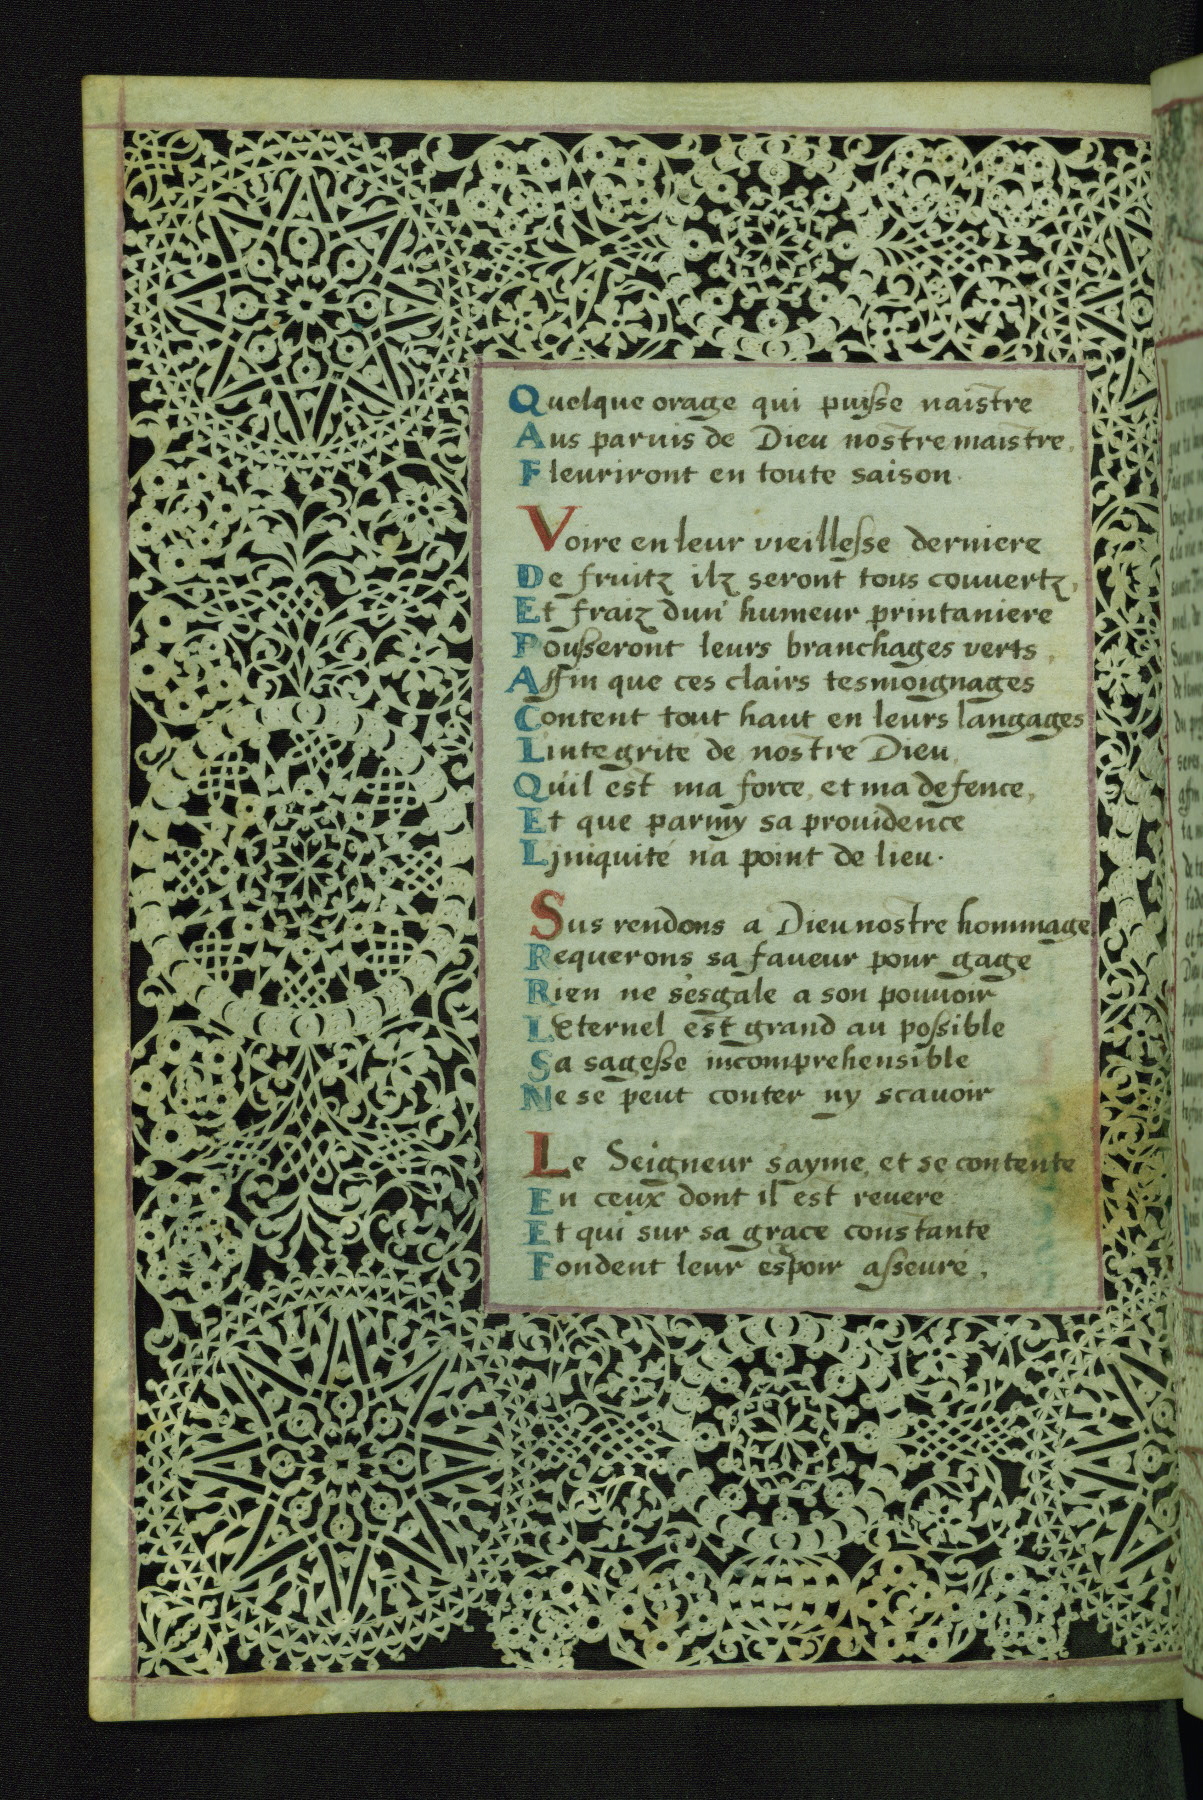 Quelque orage qui puisse naistre
Aus paruis de Dieu nostre maistre,
Fleuriront en toute saison.
Voire en leur vieillesse derniere
De fruitz ilz seront tous couuertz,
Et fraiz dun' humeur printaniere
Pousseront leurs branchages verts,
Affin que ces clairs tesmoignages
Content tout haut en leurs langages
Lintegrité de nostre Dieu,
Qu'il est ma force, et ma defence,
Et que parmy sa prouidence
Ljniquité n'a point de lieu.
Sus rendons a Dieu nostre hommage
Requerons sa faueur pour gage
Rien ne s'esgale a son pouuoir
LEternel est grand au possible
Sa sagesse incomprehensible
Ne se peut conter ny scauoir
Le Seigneur s'ayme, et se contente
En ceux dont il est reuere
Et qui sur sa grace constante
Fondent leur espoir asseuré,